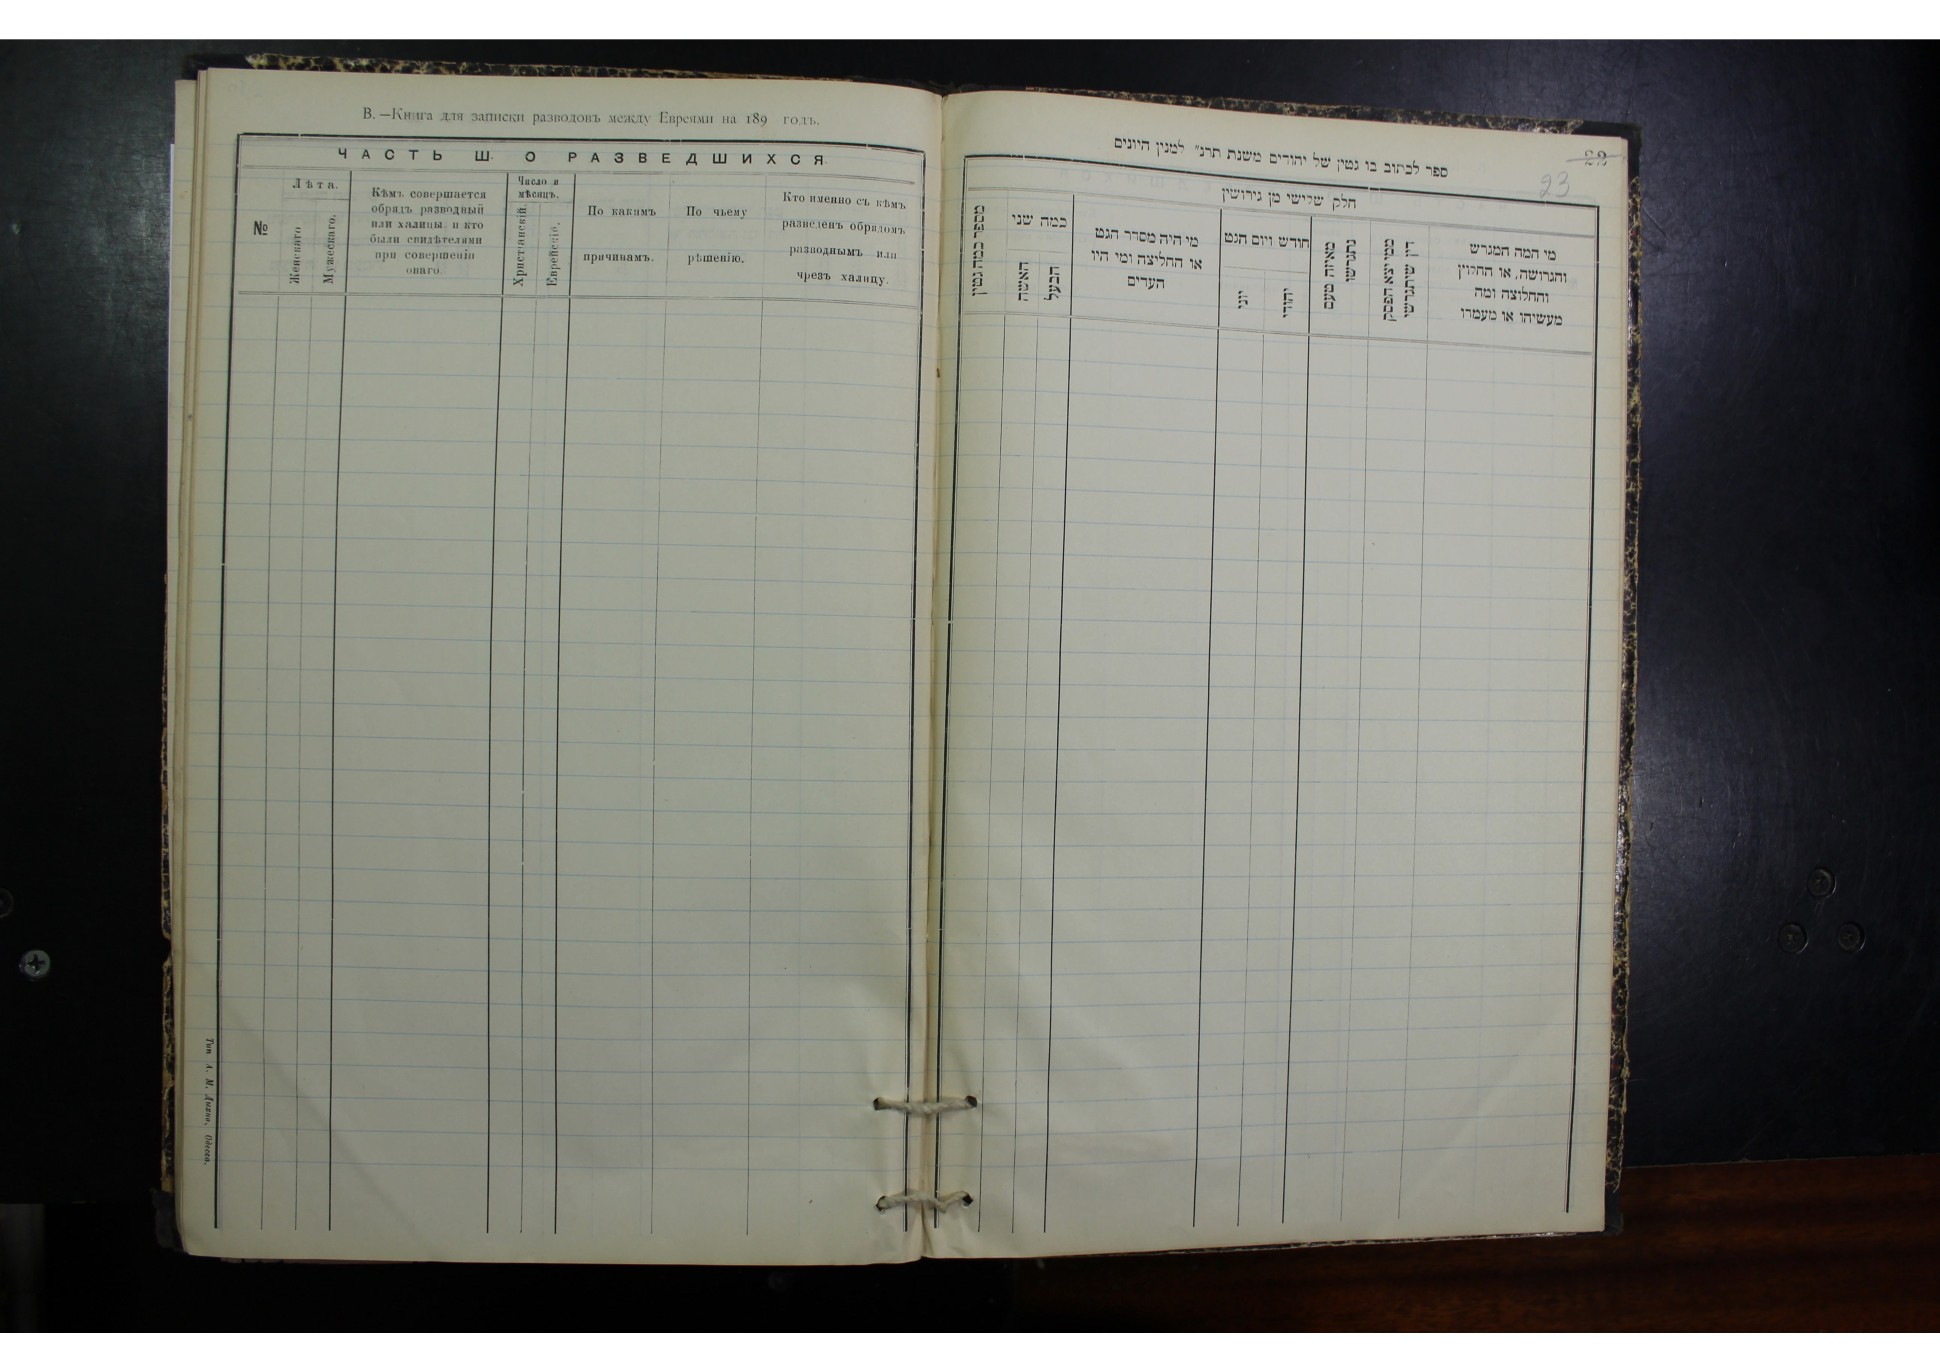 В. — Книга для записки разводовъ между Евреями на 189 годъ.
ЧАСТЬ Ш. О РАЗВЕДШИХСЯ.
№
Лѣта.
Женскаго
Мужескаго.
Кѣмъ совершается
обрядъ разводный
или халицы и кто
были свидѣтелями
при совершеніи
онаго.
Число и
мѣсяцъ.
Христіанскій.
Еврейскій.
По какимъ
причинамъ.
По чьему
рѣшенію.
Кто именно съ кѣмъ
разведенъ обрядомъ
разводнымъ или
чрезъ халицу.
Тип А. М. Дыхно, Одесса.
ספר לכתוב בו גטין של יהודים משנת תרנ״ למנין היונים
22
23
חלק שלישי מן גירושין
מספר כמה גטין
כמה שני
האשה
הבעל
מי היה מסדר הגט
או החליצה ומי היו
העדים
חודש ויום הגט
יוני
יהודי
מאיזה טעם
נתגרשו
ממי יצא הפסק
דין שיתגרשו
מי המה המגרש
והגרושה, או החלוץ
והחלוצה ומה
מעשיהו או מעמדו